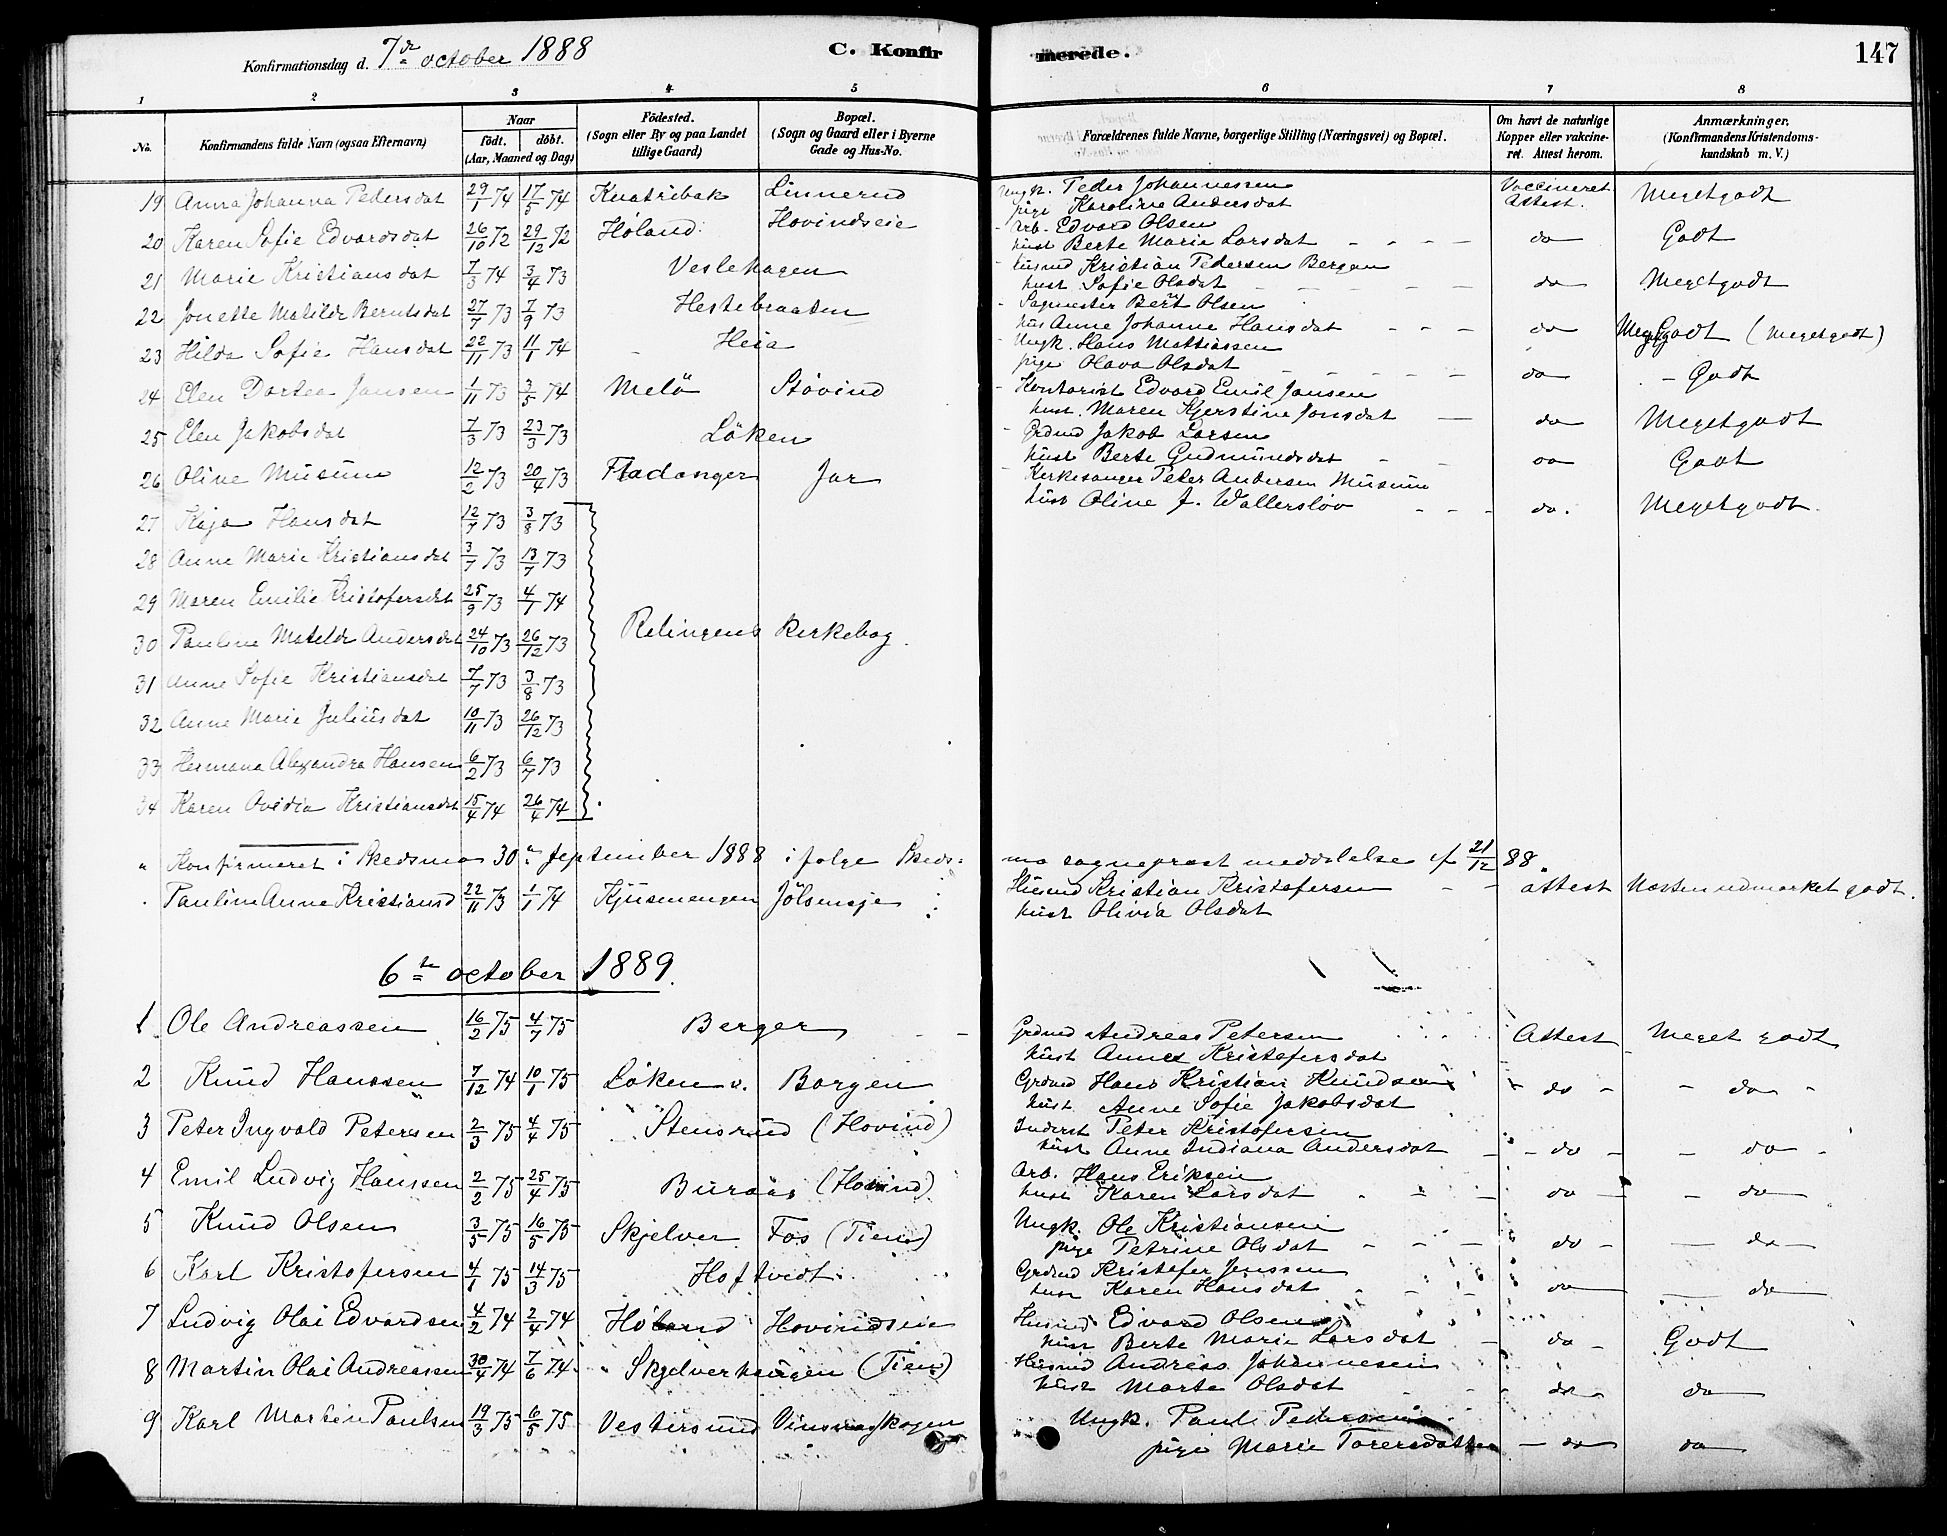 Konfirmationsdag d. 7de october 1888 C. Konfirmerede. 147
1 2 3 4 5 6 7 8
No. Konfirmandens fulde Navn (ogsaa Efternavn) Naar födt. döbt. (Aar, Maaned og Dag) Födested. (Sogn eller By og paa Landet tillige Gaard) Bopæl. (Sogn og Gaard eller i Byerne Gade og Hus-No. Forældrenes fulde Navne, borgerlige Stilling (Næringsvei) og Bopæl. Om havt de naturlige Kopper eller vakcineret. Attest herom. Anmærkninger, (Konfirmandens Kristendomskundskab m. V.)
19 Anna Johanna Pedersdat 29/1 74 17/5 74 Knatribak Linnerud Ungk. Peder Johannessen Vaccineret Attest. Megetgodt
pige Karoline Andersdat
20 Karen Sofie Edvardsdat 26/10 72 29/12 72 Höland Hovindseie Arb. Edvard Olsen
hust Berte Marie Larsdat - - - - do Godt
21 Marie Kristiansdat 7/3 74 3/4 73 Veslehagen Husmd Kristian Pedersen Bergan
hust. Sofie Olsdat - - - - do Megetgodt
22 Jonette Matilde Berntsdat 27/7 73 7/9 73 Hestebraaten Sagmester Bert Olsen
hus Anne Johanne Hansdat - - - do Meget Godt (Megetgodt)
23 Hilda Sofie Hansdat 22/11 73 11/1 74 Heia Ungk. Hans Mattiassen
pige Olava Olsdat - - - - do - Godt
24 Elen Dortea Jansen 1/11 73 3/5 74 Melö Stövind Kontorist Edvard Emil Jansen
hust. Maren Kjerstine Jonsdat - do Megetgodt
25 Elen Jakobsdat 7/3 73 23/3 73 Löken Grdmd Jakob Larsen
hust Berte Gudmundsdat - - do Godt
26 Oline Musum 12/2 73 20/4 73 Fladanger Jar Kerkesanger Peter Andersen Musum
hust Oline J. Wallerslöv - - - do. Megetgodt.
27 Kaja Hansdat 12/7 73 3/8 73
28 Anne Marie Kristiansdat 3/7 73 13/7 73
29 Maren Emilie Kristofersdat 25/9 73 4/1 74
30 Pauline Matilde Andersdat 24/10 73 26/12 73 Relingens Kerkebog.
31 Anne Sofie Kristiansdat 7/7 73 3/8 73
32 Anne Marie Juliusdat 10/11 73 26/12 73
33 Hermana Alexandra Hansen 6/2 73 6/7 73
34 Karen Ovidia Kristiansdat 15/4 74 26/4 74
" Konfirmeret i Skedsmo 30te September 1888 i følge Skedsmo sogneprest meddelelse af 21/12 88.
Pauline Anne Kristiansd 22/11 73 1/1 74 Kjusmengen Jölsensje Husmd Kristian Kristofersen - - attest Næsten udmærket godt.
hust Olivia Olsdat
6te october 1889.
1 Ole Andreassen 16/2 75 4/7 75 Berger Grdmd Andreas Petersen Attest Meget godt
hust Anne Kristofersdat
2 Knud Hanssen 7/12 74 10/1 75 Löken v. Borgen Grdmd Hans Kristian Knudsen - do - - do -
hust. Anne Sofie Jakobsdat
3 Peter Ingvald Petersen 2/3 75 4/4 75 Stensrud (Hovind) Inderst Peter Kristofersen
hust Anne Indiana Andersdat - - do - do -
4 Emil Ludvig Hanssen 2/2 75 25/4 75 Buraas (Hovind) Arb. Hans Eriksen
hust Karen Larsdat - - - do - - do
5 Knud Olsen 3/5 75 16/5 75 Skjelver Fos (Tien) Ungk. Ole Kristiansen
pige Petrine Olsdat - - - do - - do
6 Karl Kristofersen 4/1 75 14/3 75 Hoftvedt Grdmd Kristofer Jenssen
hust Karen Hansdat - - - do - do
7 Ludvig Olai Edvardsen 4/2 74 2/4 74 Höland Hovindseie Husmd Edvard Olsen
hust Berte Marie Larsdat - do - Godt
8 Martin Olai Andreassen 30/4 74 7/6 74 Skjelverhaugen (Tien) Husmd Andreas Johannesen
hust Marte Olsdat - - do - do
9 Karl Martin Paulsen 19/3 75 6/5 75 Vestersund Ungk. Paul Pedersen
pige Marie Torersdatter - do do